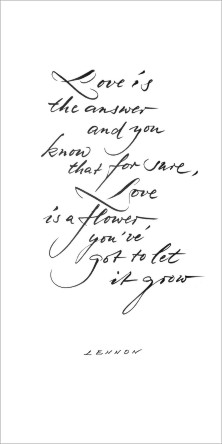 Love is
the answer
and you
know
that for sure,
Love
is a flower
you've
got to let
it grow
LENNON